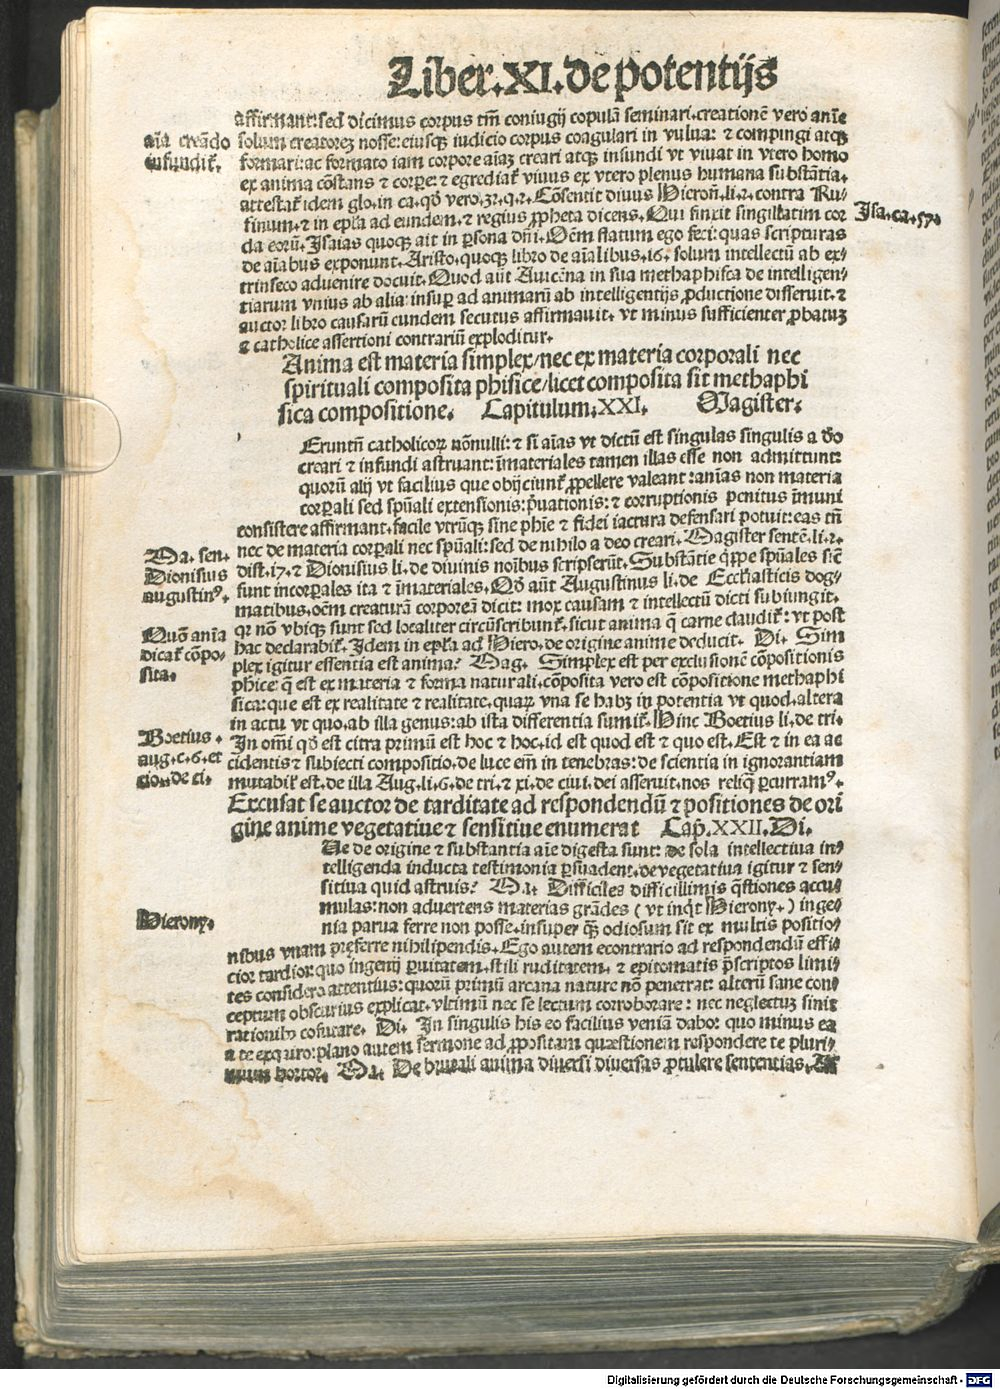 Liber.XI.de potentijs
affirmant: sed dicimus corpus tm̄ coniugij copulā seminari. creationē vero anīe
solum creatorez nosse: eiusqꝫ iudicio corpus coagulari in vulua: ⁊ compingi atqꝫ
formari: ac formato iam corpore aīaz creari atqꝫ infundi vt viuat in vtero homo
ex anima cōstans ⁊ corpore: ⁊ egrediat᷑ viuus ex vtero plenus humana substātia.
attestat᷑ idem glo. in ca. qd̄ vero. 32. q. 2. Cōsentit diuus Hieroñ. li. 2. contra Ru-
finum. ⁊ in epl̄a ad eundem. ⁊ regius ꝓpheta dicens. Qui finxit singillatim cor
da eorū. Isaias quoqꝫ ait in ꝑsona dn̄i. Oēm flatum ego feci: quas scripturas
de aīabus exponunt. Aristo. quoqꝫ libro de aīalibus. 16. solum intellectū ab ex-
trinseco aduenire docuit. Quod aūt Auicēna in sua methaphisca de intelligen-
tiarum vnius ab alia: insuꝑ ad animarū ab intelligentijs ꝓductione disseruit. ⁊
auctor libro causarū eundem secutus affirmauit. vt minus sufficienter ꝓbatuz
⁊ catholice assertioni contrariū exploditur.
aīa creādo
infundit᷑.
Isa. ca. 57.
Anima est materia simplex/nec ex materia corporali nec
spirituali composita phisice/licet composita sit methaphi
sica compositione. Capitulum. XXI. Magister.
Eruntn̄ catholicoꝝ nōnulli: ⁊ si aīas vt dictū est singulas singulis a deo
creari ⁊ infundi astruant: īmateriales tamen illas esse non admittunt:
quorū alij vt facilius que obijciunt᷑ ꝓpellere valeant: anīas non materia
corꝑali sed spūali extensionis: p̄uationis: ⁊ corruptionis penitus īmuni
consistere affirmant. facile vtrūqꝫ sine phīe ⁊ fidei iactura defensari potuit: eas tn̄
nec de materia corꝑali nec spūali: sed de nihilo a deo creari. Magister sentē. li. 2.
dist. 17. ⁊ Dionisius li. de diuinis noībus scripserūt. Substātie q̄ppe spūales sic̄
sunt incorꝑales ita ⁊ īmateriales. Qd̄ aūt Augustinus li. de Ecclesiasticis dog-
matibus. oēm creaturā corporeā dicit: mox causam ⁊ intellectū dicti subiungit.
qꝛ nō vbiqꝫ sunt sed localiter circūscribunt᷑. sicut anima q̄ carne claudit᷑: vt post
hac declarabit᷑. Idem in epl̄a ad Hiero. de origine anime deducit. Di. Sim
plex igitur essentia est anima? Mag. Simplex est per exclusionē cōpositionis
phice: q̄ est ex materia ⁊ forma naturali. cōposita vero est cōpositione methaphi
sica: que est ex realitate ⁊ realitate. quaꝝ vna se habꝫ in potentia vt quod. altera
in actu vt quo. ab illa genus: ab ista differentia sumit᷑. Hinc Boetius li. de tri.
In om̄i qd̄ est citra primū est hoc ⁊ hoc. id est quod est ⁊ quo est. Est ⁊ in ea ac
cidentis ⁊ subiecti compositio. de luce em̄ in tenebras: de scientia in ignorantiam
mutabit᷑ est. de illa Aug. li. 6. de tri. ⁊ xi. de ciui. dei asseruit. nos reliq̄ ꝑcurram⁹.
Ma. sen.
Dionisius
augustin⁹.
Quō anīa
dicat᷑ cōpo-
sita.
Boetius.
aug. c. 6. et
de ci.
Excusat se auctor de tarditate ad respondendū ⁊ positiones de ori
gine anime vegetatiue ⁊ sensitiue enumerat Cap. XXII. Di.
Ue de origine ⁊ substantia aīe digesta sunt: de sola intellectiua in-
telligenda inducta testimonia ꝑsuadent. de vegetatiua igitur ⁊ sen-
sitiua quid astruis? Ma. Difficiles difficillimis q̄stiones accu
mulas: non aduertens materias grādes (vt inqt̄ Hierony.) inge-
nia parua ferre non posse. insuper qꝫ odiosum sit ex multis positio-
nibus vnam preferre nihilipendis. Ego autem econtrario ad respondendū effi-
cior tardior: quo ingenij ꝑuitatem. stili ruditatem. ⁊ epitomatis p̄scriptos limi-
tes considero attentius: quorū primū arcana nature nō penetrat: alterū sane con-
ceptum obscurius explicat. vltimū nec se lectum corroborare: nec neglectuz sinit
rationib⁹ Di. In singulis his eo facilius veniā dabo: quo minus ea
a te exquiro: plano autem sermone ad ꝓpositam quæstionem respondere te pluri
mum hortor. Ma. De bruali anima diuersi diuersas ꝓtulere sententias.
Hierony.
Digitalisierung gefördert durch die Deutsche Forschungsgemeinschaft - DFG